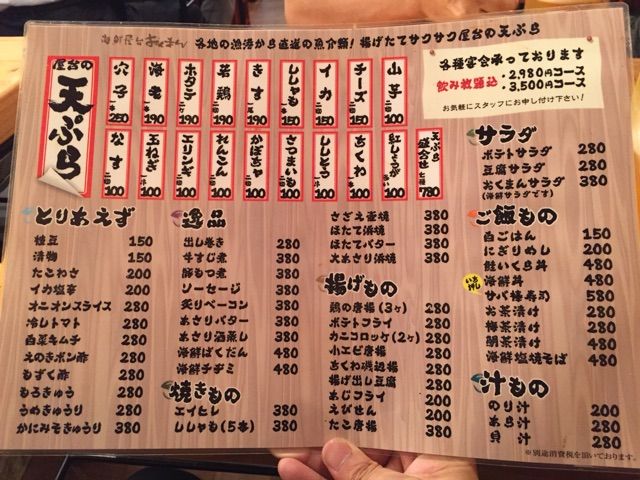 各地の漁港から直送の魚介類！揚げたてサクサク屋台の天ぷら
各種宴会承っております
飲み放題込
・2,980円コース
・3,500円コース
お気軽にスタッフにお申し付け下さい！
屋台の天ぷら
穴子 一本 250
海老 一本 190
ホタテ 二ケ 190
若鶏 二ケ 190
きす 190
ししゃも 150
イカ 150
チーズ 150
山芋 二切 100
なす 二切 100
玉ねぎ 100
エリンギ 100
れんこん 二切 100
かぼちゃ 二切 100
さつまいも 二切 100
ししとう 100
ちくわ 100
紅しょうが 100
天ぷら盛合せ 七種 780
とりあえず
枝豆 150
漬物 150
たこわさ 200
イカ塩辛 200
オニオンスライス 280
冷しトマト 280
白菜キムチ 280
えのきポン酢 280
もずく酢 280
もろきゅう 280
うめきゅうり 280
かにみそきゅうり 380
逸品
出し巻き 280
牛すじ煮 280
豚もつ煮 280
ソーセージ 380
炙りベーコン 380
あさりバター 380
あさり酒蒸し 380
海鮮ばくだん 480
海鮮チヂミ 480
焼きもの
エイヒレ 380
ししゃも(5本) 380
さざえ壷焼 380
ほたて浜焼 380
ほたてバター 380
大あさり浜焼 380
揚げもの
鶏の唐揚(3ヶ) 280
ポテトフライ 280
カニコロッケ(2ヶ) 280
小エビ唐揚 280
ちくわ磯辺揚 280
揚げ出し豆腐 280
あじフライ 200
えびせん 200
たこ唐揚 380
サラダ
ポテトサラダ 280
豆腐サラダ 280
おくまんサラダ 380
(海鮮サラダです)
ご飯もの
白ごはん 150
にぎりめし 200
鮭いくら丼 480
いち押し 海鮮丼 480
サバ棒寿司 580
お茶漬け 280
梅茶漬け 280
鯛茶漬け 480
海鮮塩焼そば 480
汁もの
のり汁 200
あら汁 200
貝汁 280
※別途消費税を頂いております。